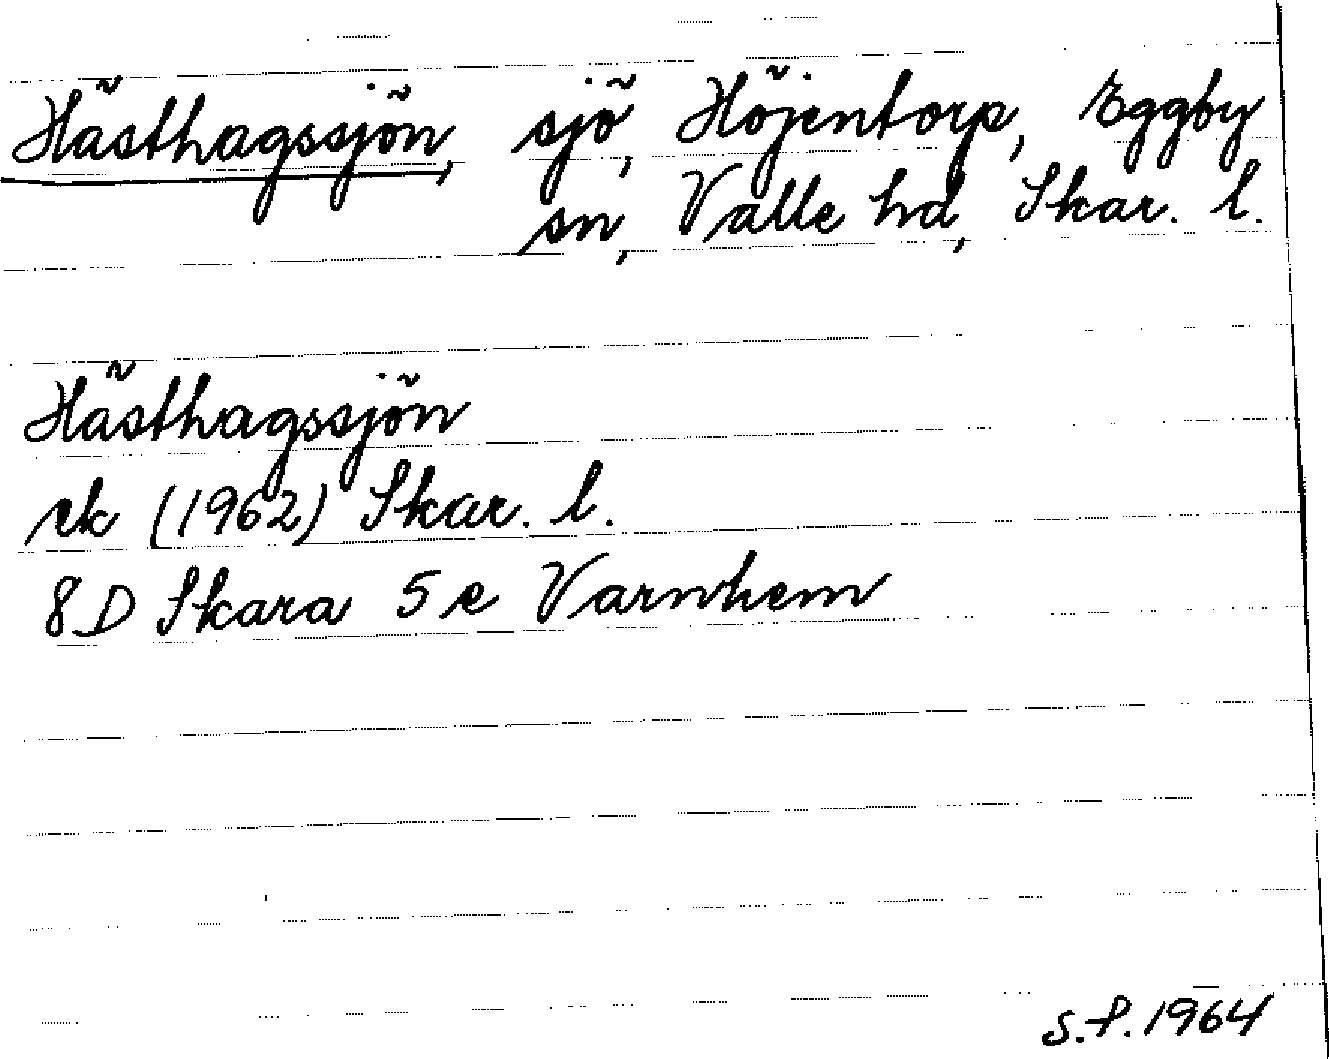 Hästhagssjön, sjö, Höjentorp, Eggby
sn, Valle hd, Skar. l.
Hästhagssjön
ek (1962) Skar. l.
8D Skara 5e Varnhem
S.P. 1964